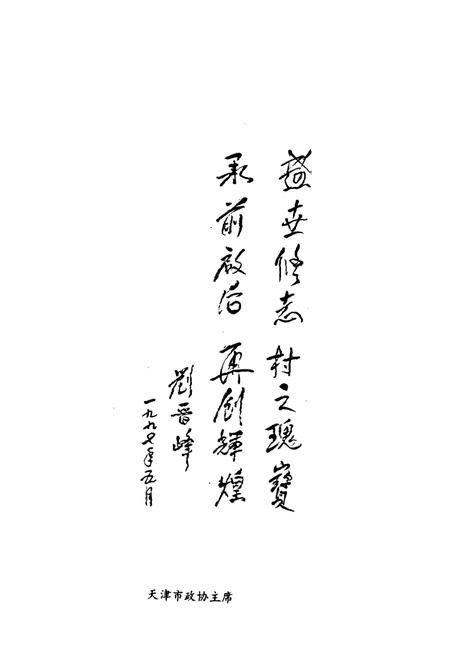 盛世修志 村之瑰寶
承前啟后 再創輝煌
劉晋峰
一九九七年五月
天津市政协主席